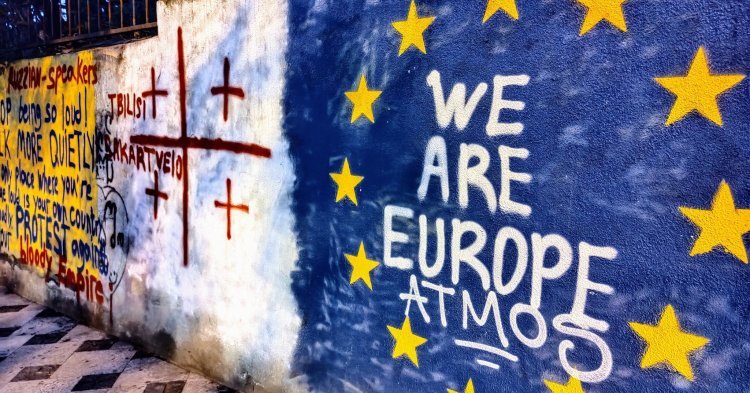 RUZZIAN-SPEAKERS
OP being so loud!
LK MORE QUIETLY
only place where you're
love is your own country
PROTEST against
your bloody Empire!
TBILISI
SAKARTVELO
WE
ARE
EUROPE
ATMOS